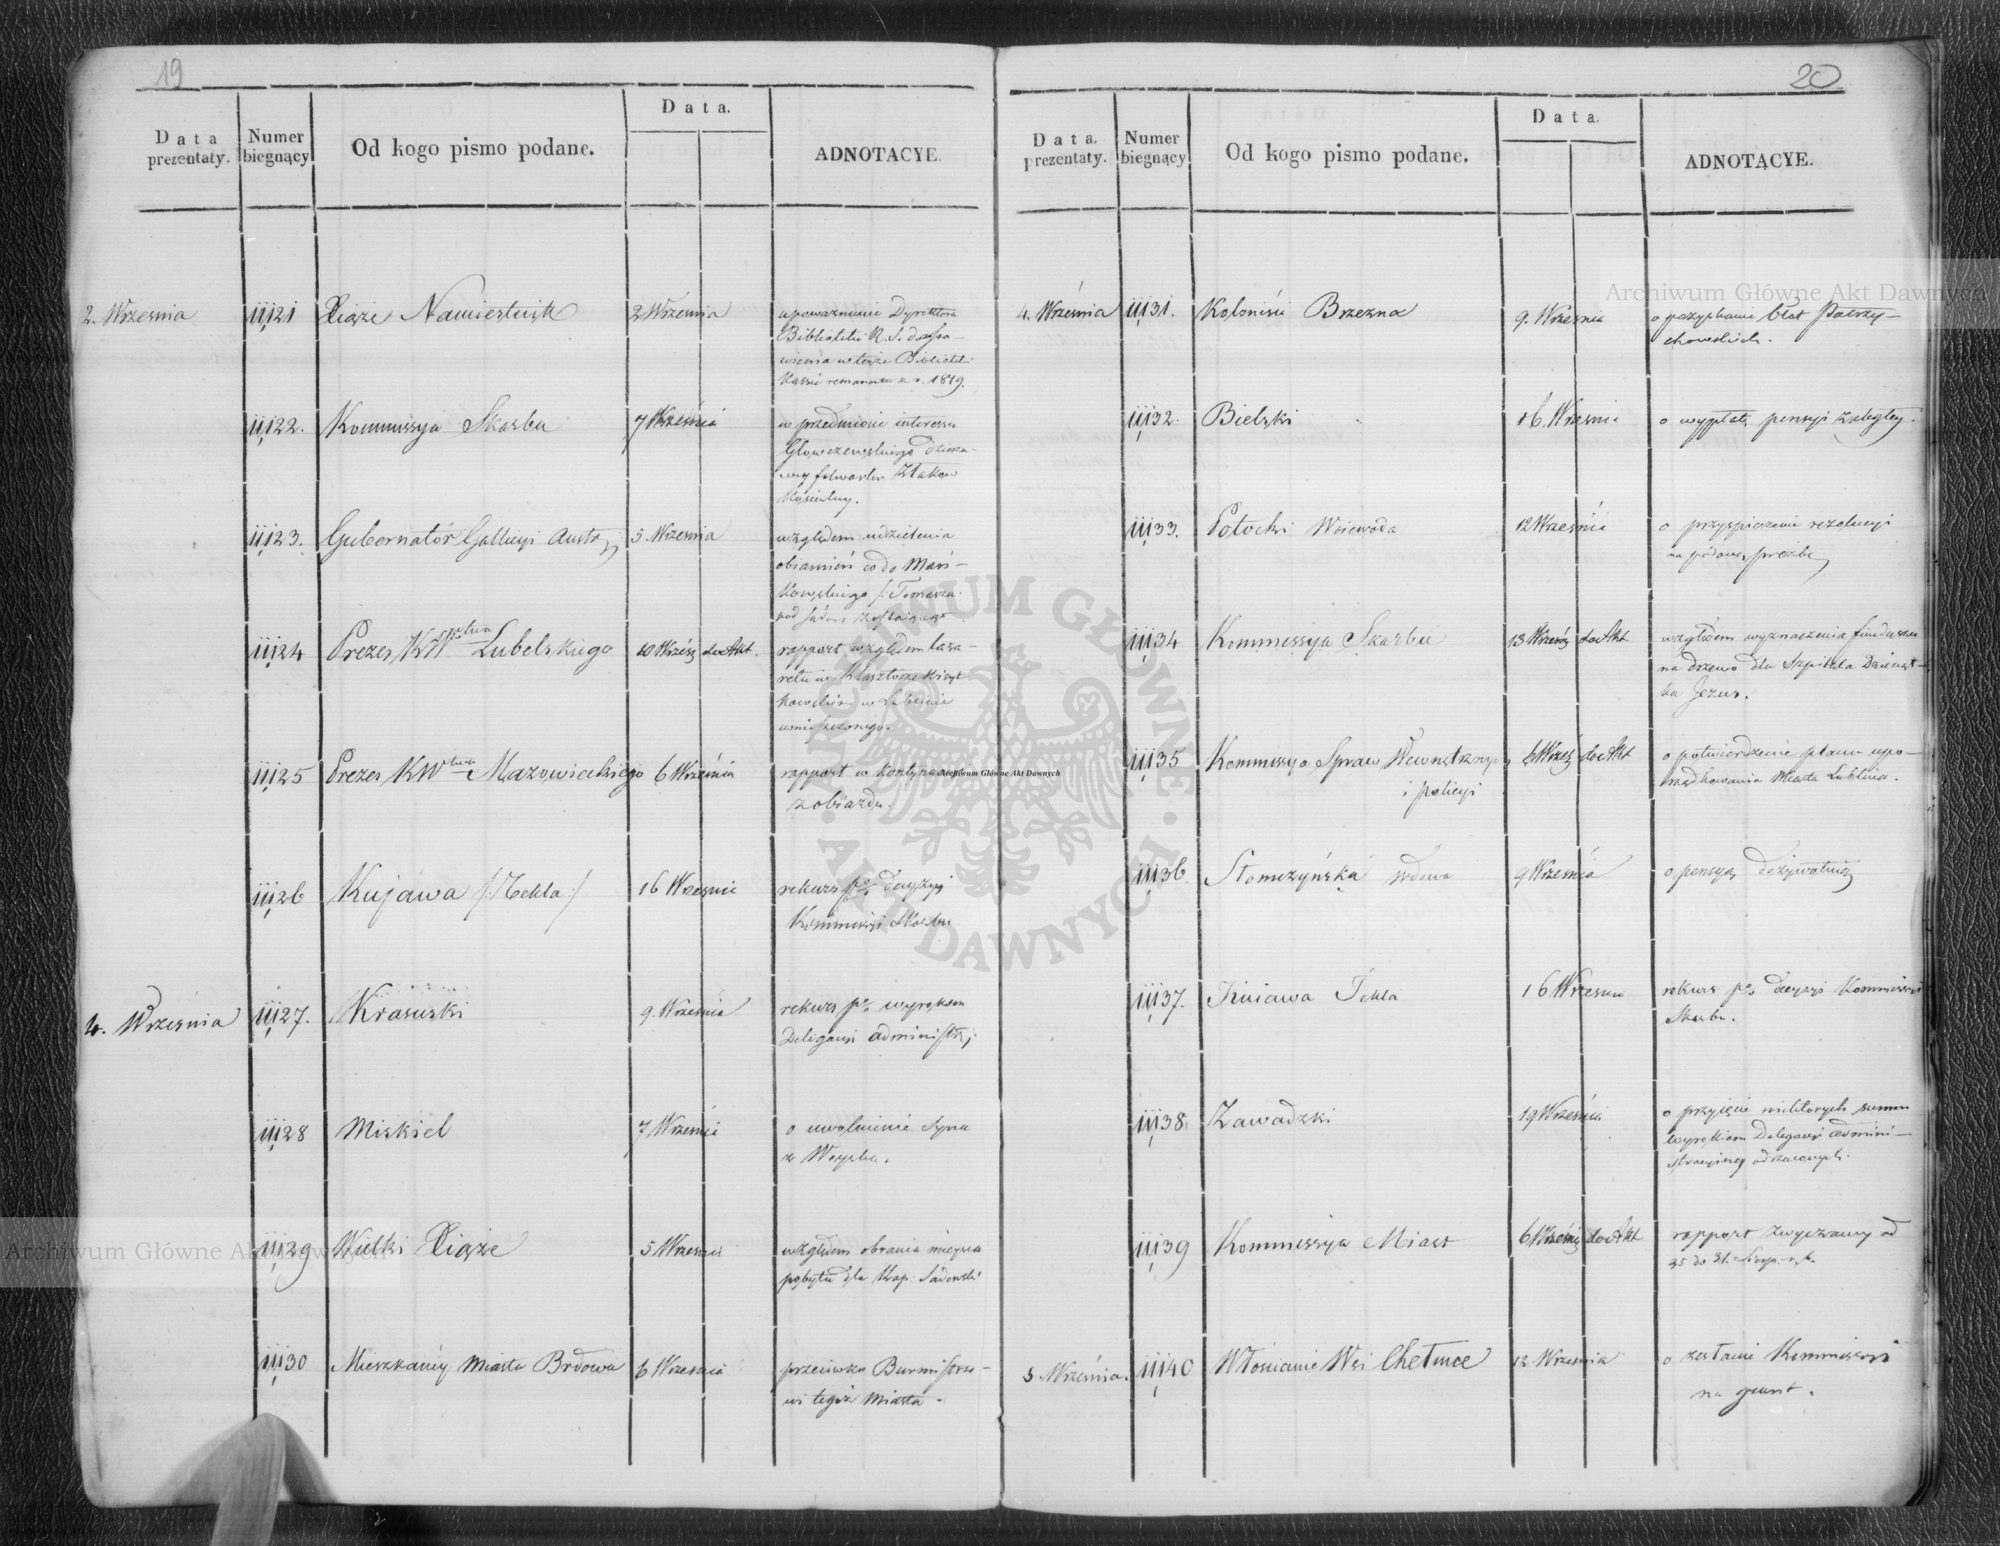 19
Data prezentaty.
Numer biegnący
Od kogo pismo podane.
Data.
ADNOTACYE.
2. Wrzesnia
21
Xiąże Namiestnik
2 Wrzesnia
upoważnienie Dyrektora
Biblioteki
w teyże Bibliotek
Kassie remanentu z r. 1819.
22.
Kommissya Skarbu
7 Września
w przedmiocie interessu
Głowczewskiego dzierża-
wcy folwarku Złaków
Kościelny.
23.
Gubernator Gallicyi Austr.
5. Wrzesnia
względem udzielenia
obiasnień co do Mań-
kowskiego /: Tomasza
pod sąd
24
Prezes KW stwa Lubelskiego
10 Wrześ do Akt.
rapport względem laza-
retu w Klasztorze
w Lublinie
umieszczonego.
25
Prezes KW twa Mazowieckiego
6 Września
rapport w kontynuacyi
z obiazdu.
26
Kujawa /: Tekla :/
16 Wrzesnia
rekurs p. decyzyi
Kommissyi Skarbu
4. Wrzesnia
27.
Krasuski
9. Wrzesnia
rekurs p. wyrokowi
Delegacyi administr;
28
Miskiel
7 Września
o uwolnienie Syna
z Woyska.
29
Wielki Xiąże
5 Wrzesnia
względem obrania mieysca
pobytu dla Kap: Sadowski
30
Mieszkańcy Miasta Brdowa
6 Wrzesnia
przeciwko Burmistrzo-
wi tegoż Miasta.
20
Data. prezentaty.
Numer biegnący
Od kogo pismo podane.
Data.
ADNOTACYE.
4. Wrzesnia
31.
Kolonisci Brzezna
9. Wrzesnia
o
chowskich.
32.
Bielski
16. Wrzesnia
o wypłatę pensyi zaległey.
33.
Potocki Woiewoda
12 Wrzesnia
o przyspieszenie rezolucyi
na podaną prożbę
34
Kommissya Skarbu
13 Wrześ do Akt
względem wyznaczenia funduszu
na drzewo dla Szpitala Dzieciąt-
ka Jezus.
35
Kommissya Spraw Wewnętrznych
i policyi
6 Wrześ do Akt
o potwierdzenie planu upo-
rządkowania Miasta Lublina.
36.
Słomczyńska wdowa
9 Wrzesnia
o pensyą dożywotnią
37.
Kuiawa Tekla
16 Wrzesnia
rekurs p. decyzyi Kommissyi
Skarbu.
38.
Zawadzki
19 Wrzesnia
o przyięcie summ
wyrokiem Delegacyi admini-
stracyiney odrzuconych.
39
Kommissya Miast
6 Wrześ do Akt
rapport zwyczayny od
25 do 31. Sierp. r. b.
5. Wrzesnia.
40
Włoscianie Wsi Chełmce
12 Wrzesnia
o zesłanie Kommissyi
na grunt.
Archiwum Główne Akt Dawnych
Archiwum Główne Akt Dawnych
Archiwum Główne Akt Dawnych
ARCHIWUM GŁÓWNE · AKT DAWNYCH ·